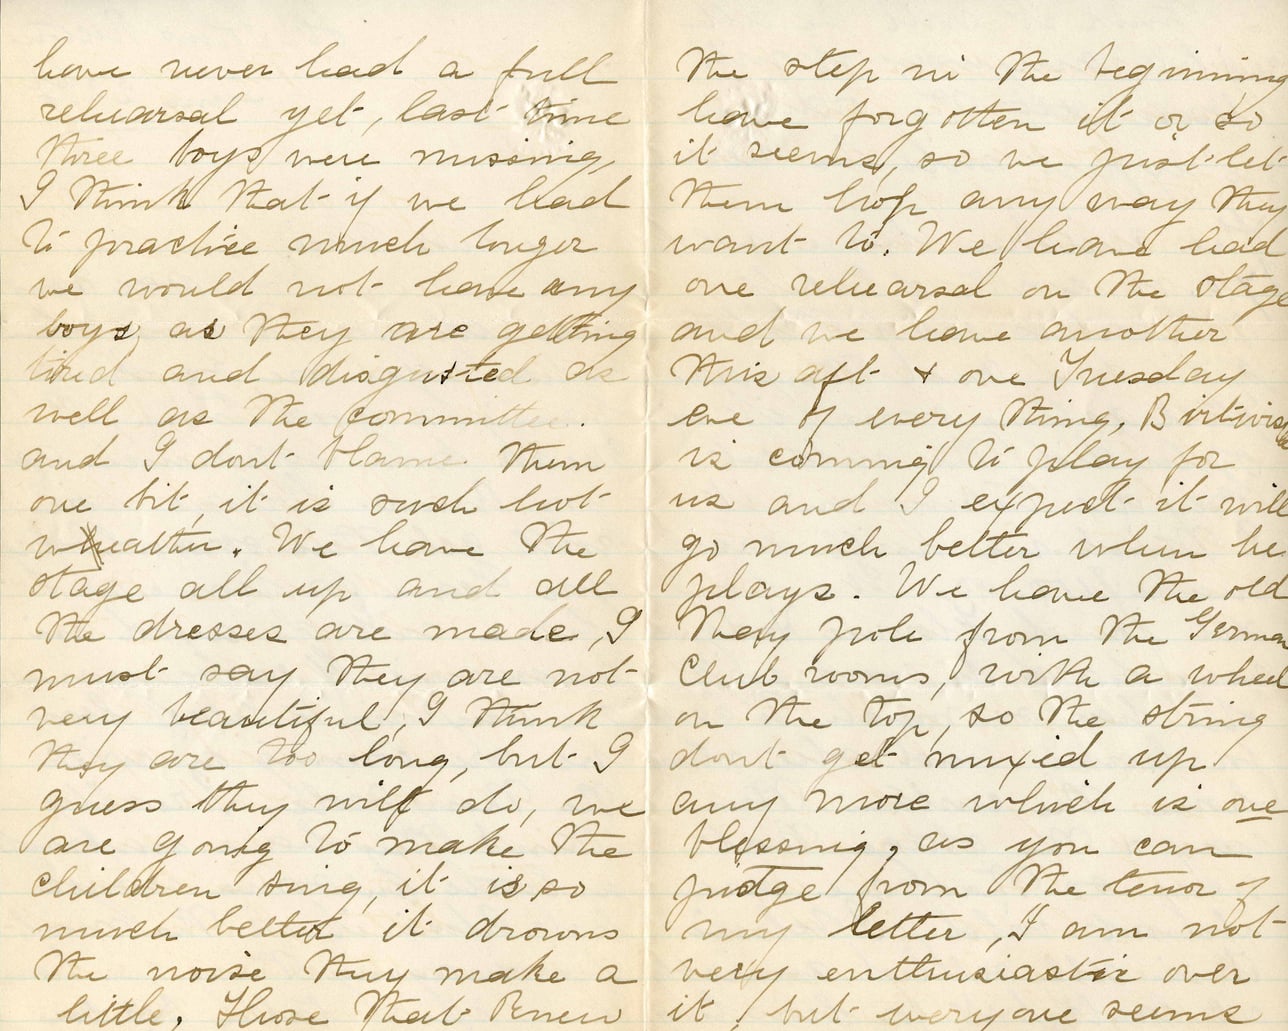 have never had a full
rehearsal yet, last time
three boys were missing,
I think that if we had
to practice much longer
we would not have any
boys, as they are getting
tired and disgusted as
well as the committee.
and I dont blame them
one bit, it is such hot
wheather. We have the
stage all up and all
the dresses are made, I
must say they are not
very beautiful, I think
they are too long, but I
guess they will do, we
are going to make the
children sing, it is so
much better it drowns
the noise they make a
little. Those that knew
the step in the beginning
have forgotten it or so
it seems, so we just let
them hop any way they
want to. We have had
one rehearsal on the stage
and we have another
this aft & one Tuesday
eve of every thing,
is coming to play for
us and I expect it will
go much better when he
plays. We have the old
May pole from the German
Club rooms, with a wheel
on the top, so the string
dont get mixed up
any more which is one
blessing, as you can
judge from the tenor of
my letter, I am not
very enthusiastic over
it, but everyone seems